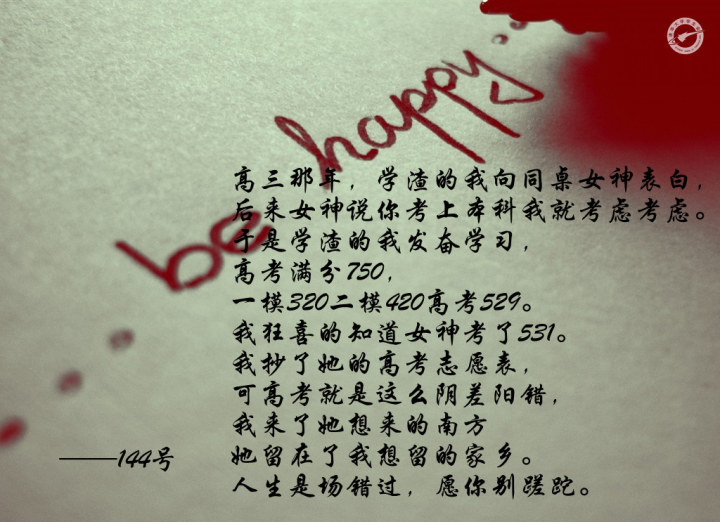 be happy
高三那年，学渣的我向同桌女神表白，
后来女神说你考上本科我就考虑考虑。
于是学渣的我发奋学习，
高考满分750，
一模320二模420高考529。
我狂喜的知道女神考了531。
我抄了她的高考志愿表，
可高考就是这么阴差阳错，
我来了她想来的南方
她留在了我想留的家乡。
人生是场错过，愿你别蹉跎。
——144号